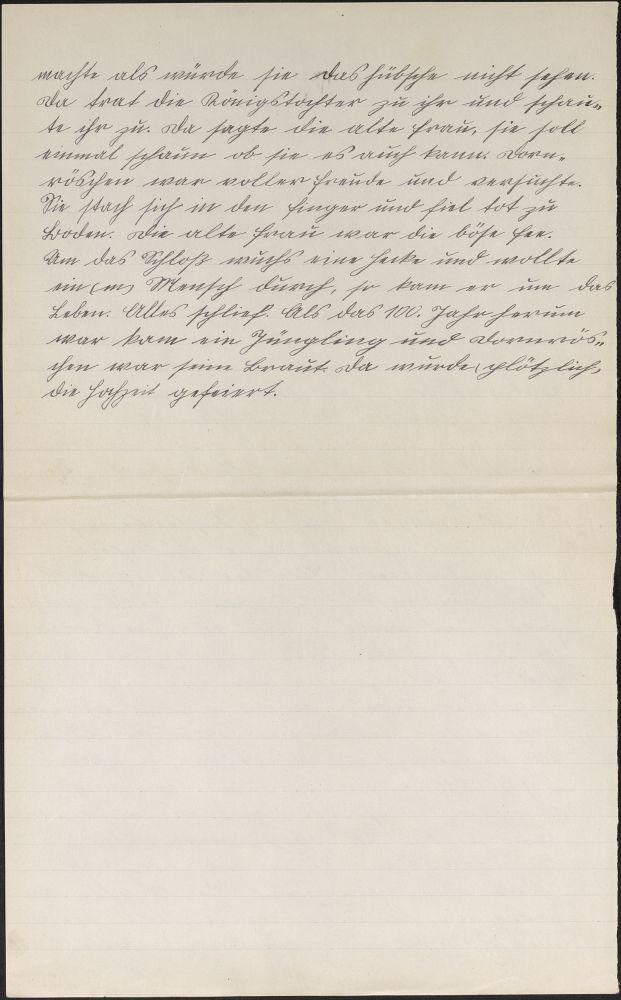 machte als würde sie das hübsche nicht sehen.
Da trat die Königstochter zu ihr und schau-
te ihr zu. Da sagte die alte Frau, sie soll
einmal schaun ob sie es auch kann. Dorn-
röschen war voller Freude und versuchte.
Sie stach sich in den Finger und fiel tot zu
Boden. Die alte Frau war die böse Fee.
Um das Schloß wuchs eine Hecke und wollte
ein (m) Mensch durch, so kam er um das
Leben. Alles schlief. Als das 100. Jahr herum
war kam ein Jüngling und Dornrös-
chen war seine Braut. Da wurde plötzlich
die Hochzeit gefeiert.